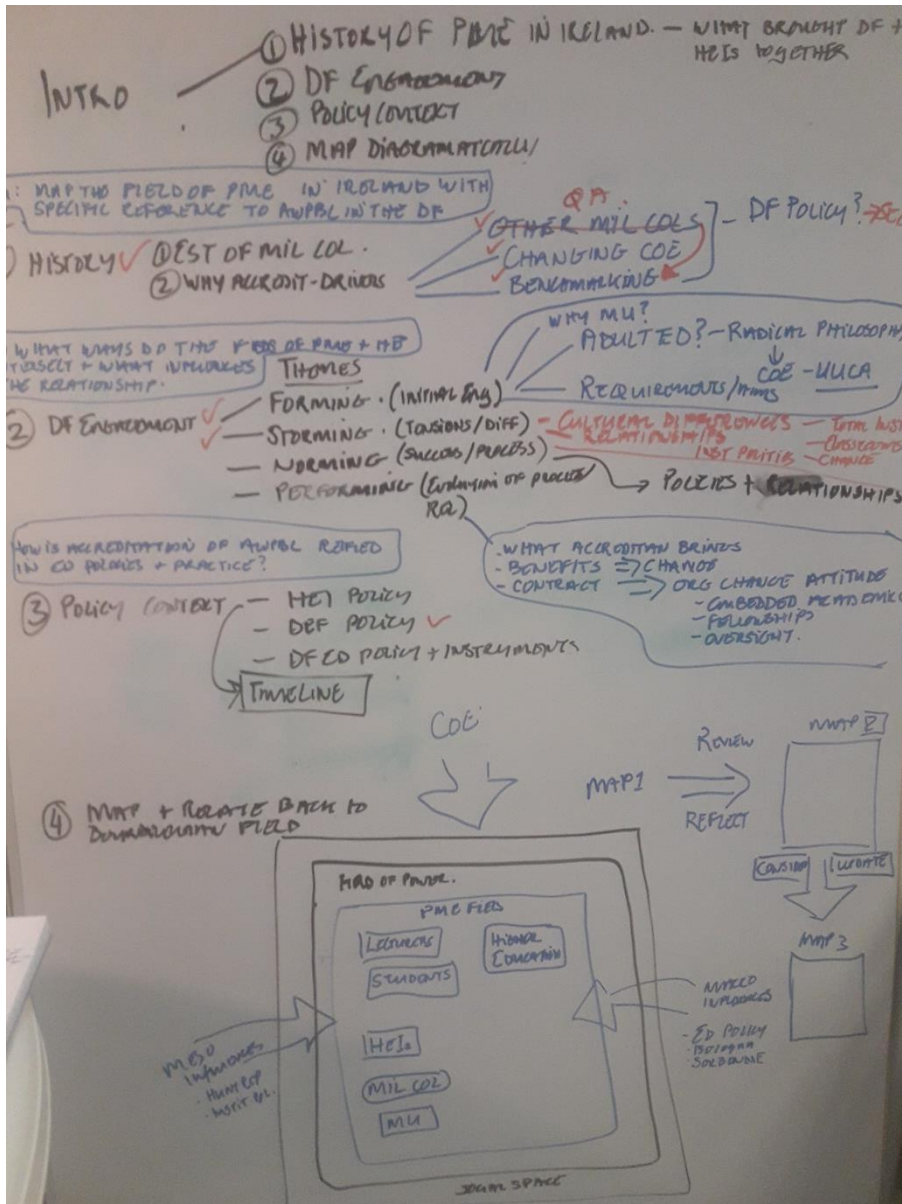 INTRO
① HISTORY OF PME IN IRELAND. — WHAT BROUGHT DF +
HEIs TOGETHER
② DF ENGAGEMENT
③ POLICY CONTEXT
④ MAP DIAGRAMATICALLY
: MAP THE FIELD OF PME IN IRELAND WITH
SPECIFIC REFERENCE TO AWPBL IN THE DF
HISTORY ✓ ① EST OF MIL COL.
② WHY ACCREDIT - DRIVERS
QA.
✓ OTHER MIL COLS
✓ CHANGING COE
✓ BENCHMARKING
— DF POLICY?
WHAT WAYS DO THE FIELDS OF PME + HE
+ WHAT INFLUENCES
THE RELATIONSHIP.
THEMES
② DF ENGAGEMENT ✓
FORMING. (INITIAL ENG)
✓ — STORMING. (TENSIONS/DIFF)
— NORMING (SUCCESS/PROCESS)
— PERFORMING (EVOLUTION OF PROCESS
RQ)
WHY MU?
ADULT ED? — RADICAL PHILOSOPHY
COE - VUCA
REQUIREMENTS/
— CULTURAL DIFFERENCES — TOTAL INST
RELATIONSHIPS
INST POLITICS — CHANGE
→ POLICIES + RELATIONSHIPS
HOW IS ACCREDITATION OF AWPBL REIFIED
IN ED POLICIES + PRACTICE?
- WHAT ACCREDITAN BRINGS
- BENEFITS ⇒ CHANGE
- CONTRACT ⇒ ORG CHANGE ATTITUDE
- EMBEDDED ACADEMIC
- FELLOWSHIPS
- OVERSIGHT.
③ POLICY CONTEXT
— HEI POLICY
— DEF POLICY ✓
— DF ED POLICY + INSTRUMENTS
TIMELINE
COE
MAP 1
REVIEW
REFLECT
MAP 2
CONSIDER
UPDATE
MAP 3
④ MAP + RELATE BACK TO
BOURDIEUIAN FIELD
FIELD OF POWER.
PME FIELD
LECTURERS
STUDENTS
HIGHER
EDUCATION
HEIs
MIL COL
MU
SOCIAL SPACE
MESO
INFLUENCES
- HUNT REP
MACRO
INFLUENCES
- ED POLICY
- BOLOGNA
SORBONNE